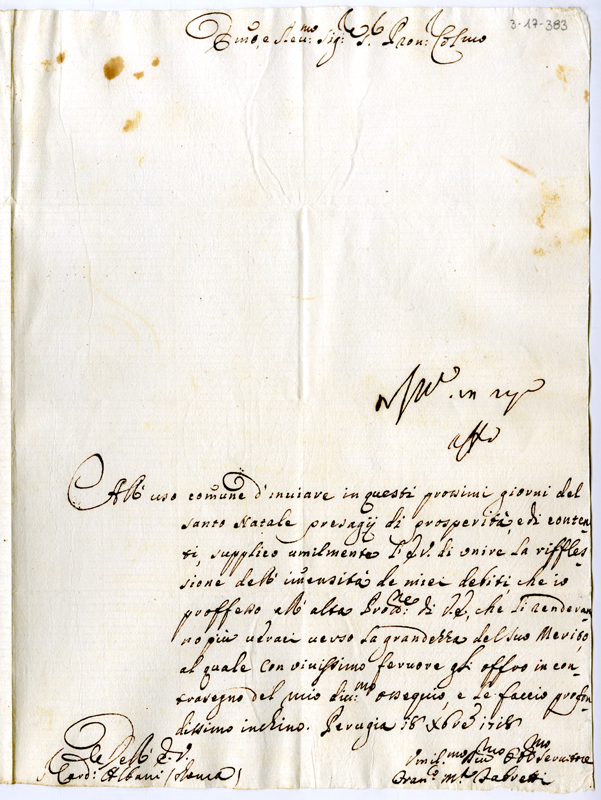 3-17-383
Em̃o, e Reu:mo Sig:r S.r Pron: Colmo
in
All' uso comune d'inuiare in questi prossimi giorni del
santo Natale presagij di prosperità, e di conten-
ti, supplico umilmente l'E.V. di unire la rifles-
sione dell' immensità de miei debiti, che io
proffesso all' alta Prot.ne di V.E., che li renderan-
no più ueraci uerso la grandezza del suo Merito,
al quale con viuissimo feruore gli offro in con-
trasegno del mio diu:mo ossequio, e le faccio profon-
dissimo inchino. Perugia 18 Xbre 1718
Dell' E.V.
Card: Albani (Roma)
Umil.mo Diu:mo Obb.mo Seruitore
Fran.o M.a